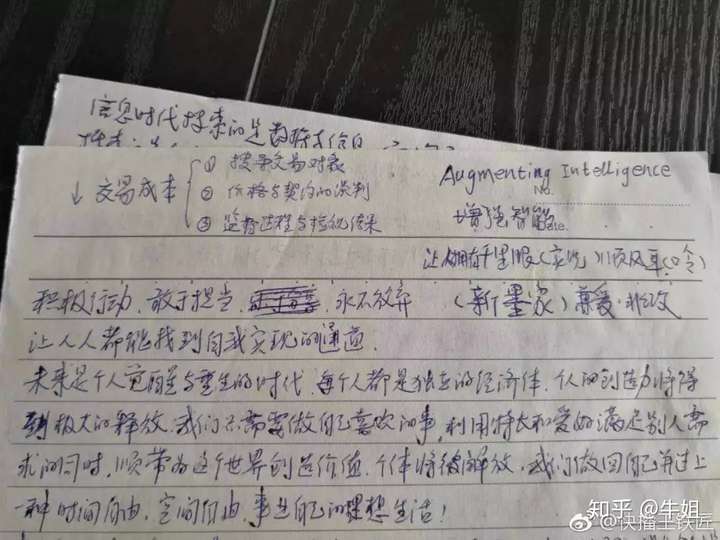 信息时代探索的是
↓交易成本
① 搜寻交易对象
② 价格与契约的谈判
③ 监督过程与检视结果
Augmenting Intelligence
No.
增强智能
Date.
让人拥有千里眼(实况)顺风耳(口令)
积极行动、敢于担当、永不放弃 (新墨家)兼爱·非攻
让人人都能找到自我实现的通道.
未来是个人觉醒与重生的时代.每个人都是独立的经济体,个人的创造力将得
到极大的释放.我们只需要做自己喜欢的事,利用特长和爱好满足别人需
求的同时,顺带为这个世界创造价值.个体将被解放,我们做回自己并过上
一种时间自由、空间自由、事关自己的理想生活!
知乎 @牛姐
@快播王铁匠